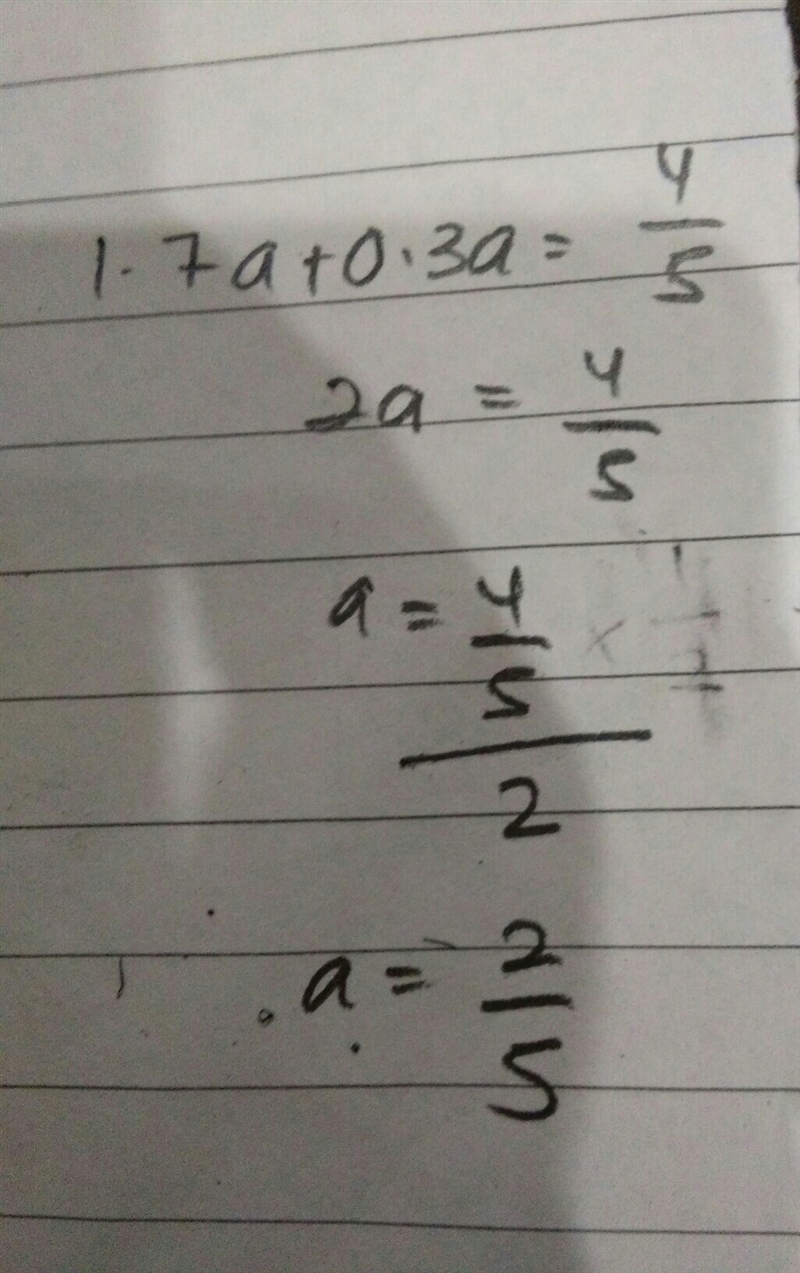 1.7a+0.3a = 4/5
2a = 4/5
a = 4/5/2
a = 2/5